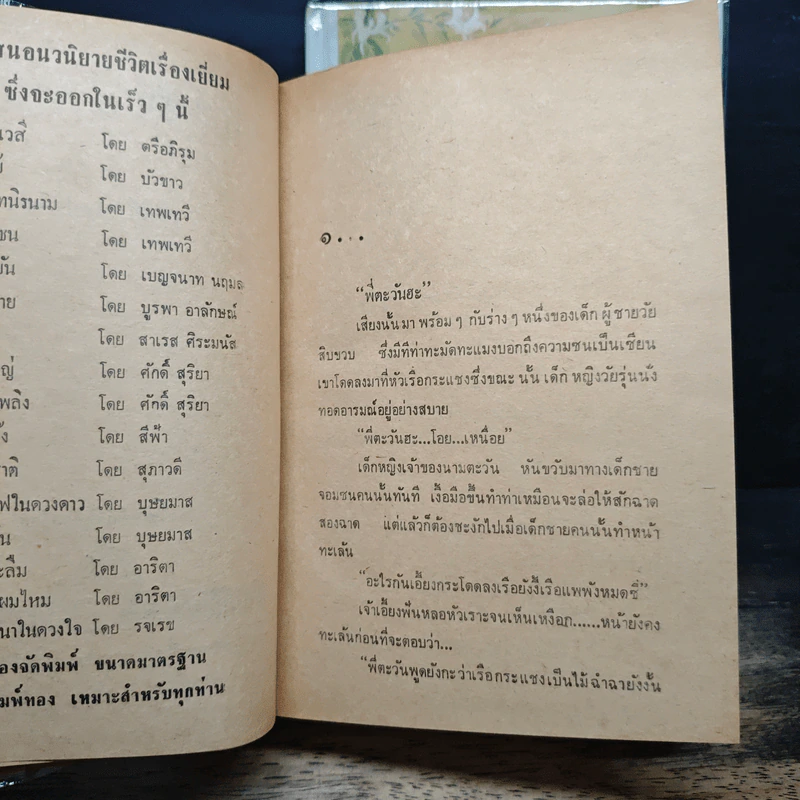 สนอนวนิยายชีวิตเรื่องเยี่ยม
ซึ่งจะออกในเร็ว ๆ นี้
โดย ตรีอภิรุม
โดย บัวขาว
ทนิรนาม โดย เทพเทวี
โดย เทพเทวี
โดย เบญจนาท นฤมล
โดย บูรพา อาลักษณ์
โดย สาเรส ศิระมนัส
โดย ศักดิ์ สุริยา
โดย ศักดิ์ สุริยา
โดย สีฟ้า
โดย สุภาวดี
ฟในดวงดาว โดย บุษยมาส
โดย บุษยมาส
โดย อาริตา
ผมไหม โดย อาริตา
นาในดวงใจ โดย รจเรช
องจัดพิมพ์ ขนาดมาตรฐาน
มพ์ทอง เหมาะสำหรับทุกท่าน
๑...
“พี่ตะวันฮะ”
เสียงนั้นมา พร้อม ๆ กับร่าง ๆ หนึ่งของเด็ก ผู้ ชายวัย
สิบขวบ ซึ่งมีทีท่าทะมัดทะแมงบอกถึงความซนเป็นเซียน
เขาโดดลงมาที่หัวเรือกระแชงซึ่งขณะ นั้น เด็ก หญิงวัยรุ่นนั่ง
ทอดอารมณ์อยู่อย่างสบาย
“พี่ตะวันฮะ...โอย...เหนื่อย”
เด็กหญิงเจ้าของนามตะวัน หันขวับมาทางเด็กชาย
จอมซนคนนั้นทันที เงื้อมือขึ้นทำท่าเหมือนจะล่อให้สักฉาด
สองฉาด แต่แล้วก็ต้องชะงักไปเมื่อเด็กชายคนนั้นทำหน้า
ทะเล้น
“อะไรกันเอี้ยงกระโดดลงเรือยังงี้เรือแพพังหมดซี่”
เจ้าเอี้ยงฟันหลอหัวเราะจนเห็นเหงือก......หน้ายังคง
ทะเล้นก่อนที่จะตอบว่า...
“พี่ตะวันพูดยังกะว่าเรือกระแชงเป็นไม้ฉำฉายังงั้น